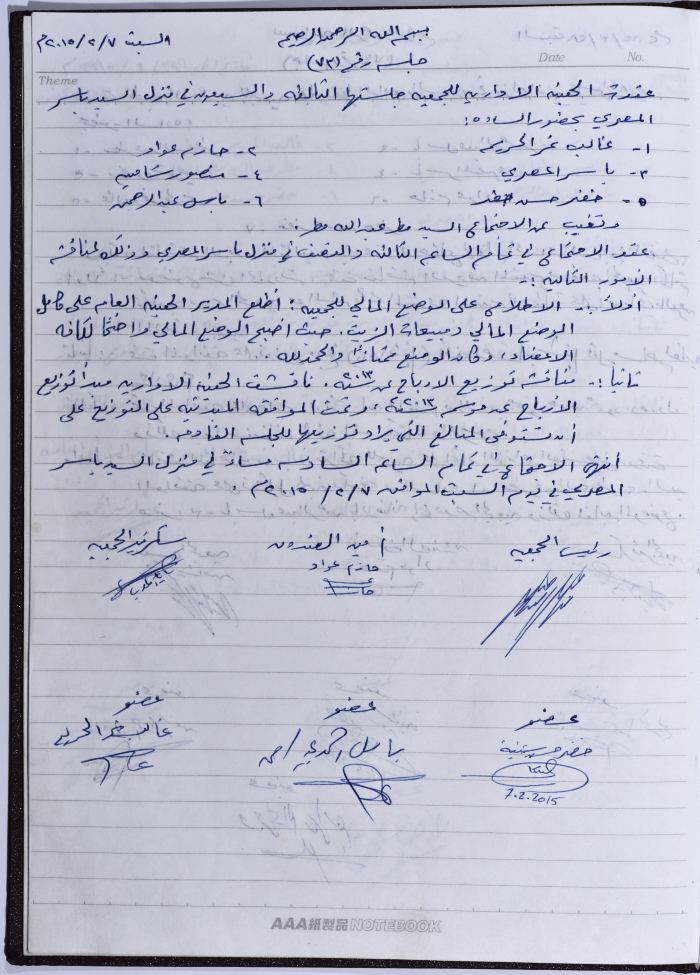 بسم الله الرحمن الرحيم
السبت ٢٠١٥/٢/٧م
جلسة رقم (٧٣)
Date No.
Theme
عقدت الهيئة الادارية للجمعية جلستها الثالثة والسبعون في منزل السيد ياسر
المصري بحضور السادة:
١- غالب عز الحريم ٢- حازم عواد
٣- ياسر المصري ٤- منصور
٥- خضر حسن ٦- باسل عبد الرحمن
وتغيب عن الاجتماع السيد مطر عبد الله مطر.
عقد الاجتماع في تمام الساعة الثالثة والنصف في منزل ياسر المصري وذلك لمناقشة
الأمور التالية :-
أولاً :- الاطلاع على الوضع المالي للجمعية: أطلع المدير الهيئة العامة على كامل
الوضع المالي ومبيعات الزيت. حيث اصبح الوضع المالي واضحاً لكافة
الاعضاء، وكان الوضع ممتازاً والحمد لله.
ثانياً :- مناقشة توزيع الارباح عن سنة ٢٠١٣. ناقشت الهيئة الادارية مبدأ توزيع
الارباح عن موسم سنة ٢٠١٣، وتمت الموافقة المبدئية على التوزيع على
أن تستوفى المبالغ التي يراد توزيعها للجلسة القادمة.
أنتهى الاجتماع في تمام الساعة السادسة مساءً في منزل السيد ياسر
المصري في يوم السبت الموافق ٢٠١٥/٢/٧م.
رئيس الجمعية أمين الصندوق سكرتير الجمعية
حازم عواد
عضو عضو عضو
خضر حسن باسل غالب عز الحريم
7.2.2015
AAA紙製品NOTEBOOK